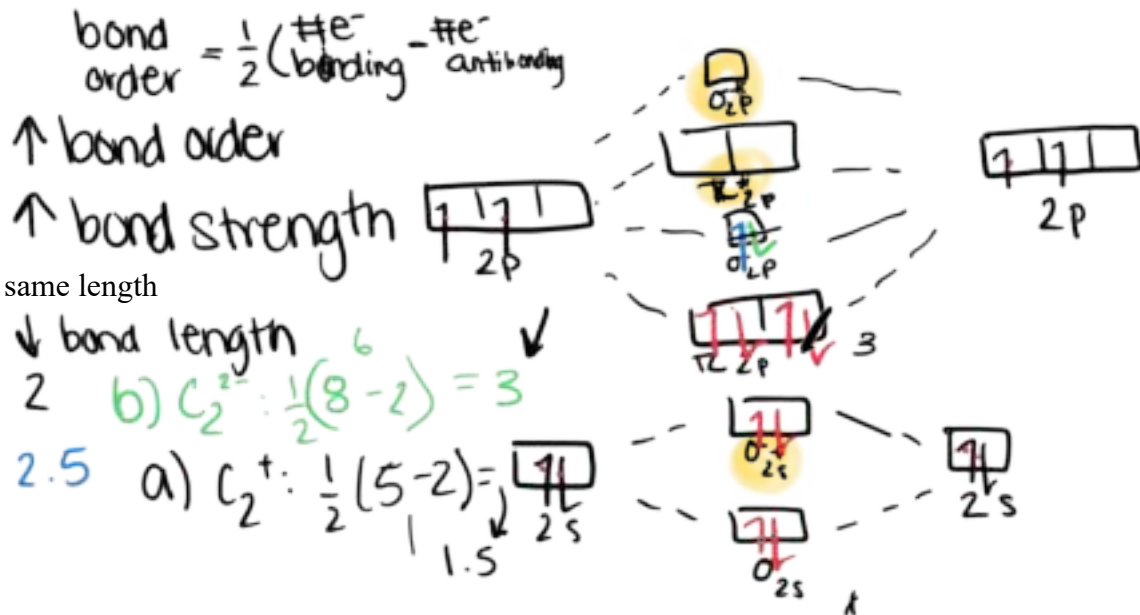 bond order = 1/2 (#e⁻ bonding - #e⁻ antibonding
↑ bond order
↑ bond strength
same length
↓ bond length
2
b) C₂²⁻ : 1/2(8-2) = 3
6
2.5
a) C₂⁺: 1/2 (5-2)=
1.5
σ*2p
π*2p
2p
2p
σ2p
π 2p
3
σ*2s
2s
2s
σ2s